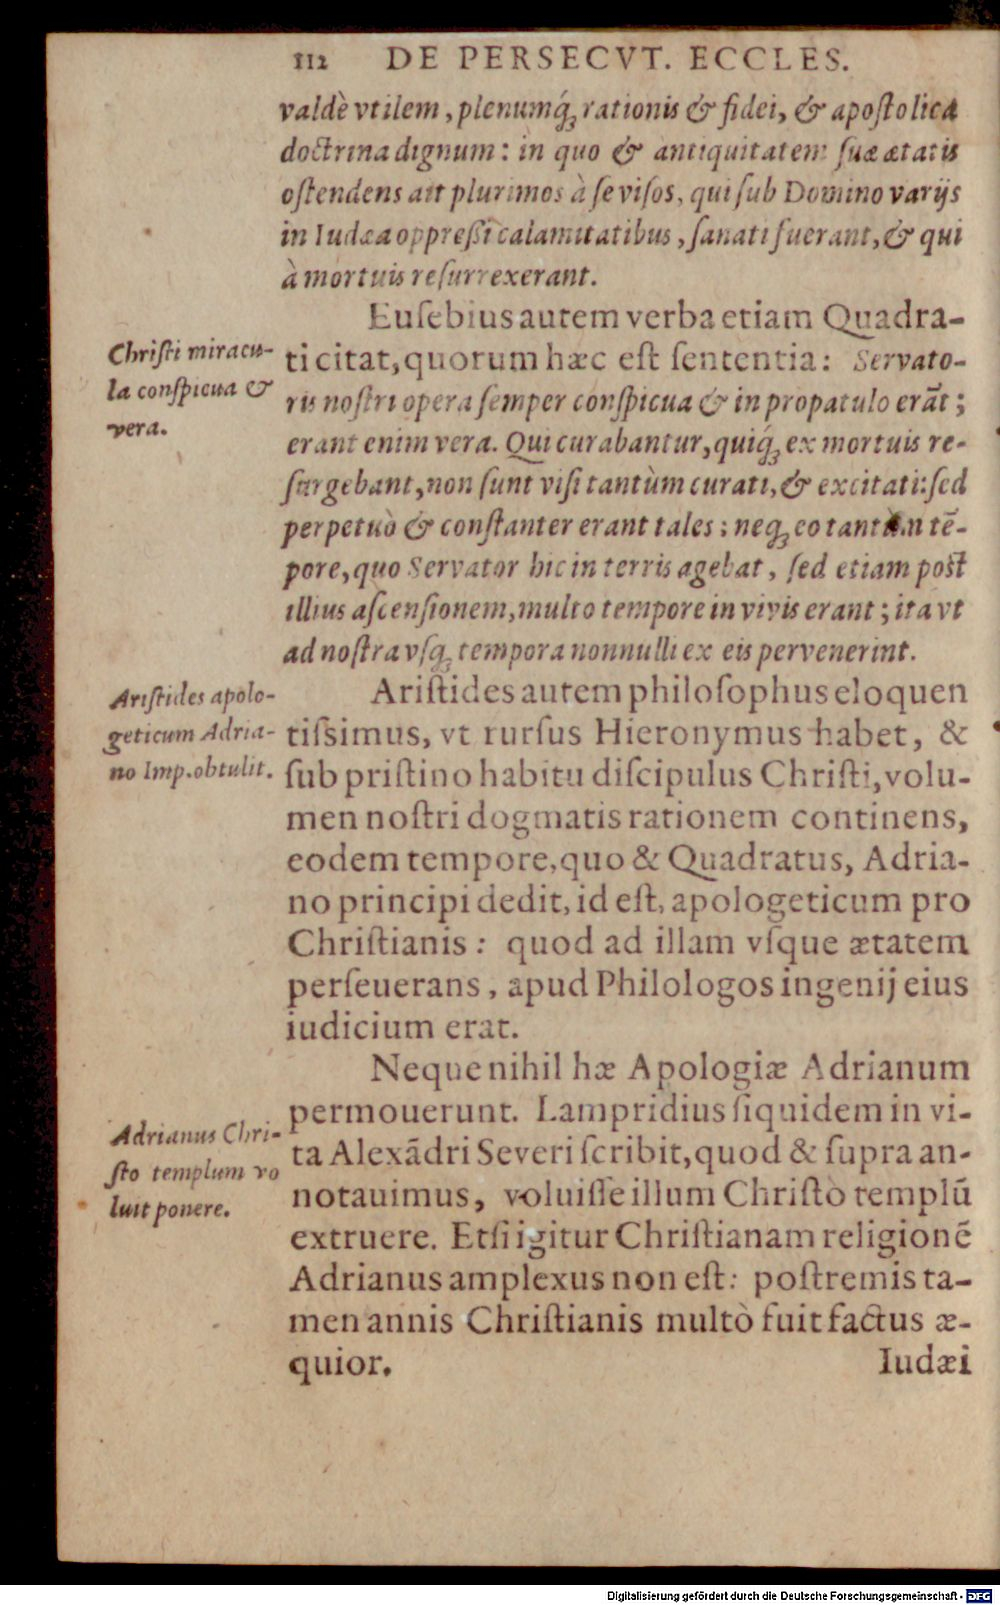 112 DE PERSECVT. ECCLES.
valdè vtilem, plenumq́ꝫ rationis & fidei, & apoſtolica
doctrina dignum: in quo & antiquitatem ſuæ ætatis
oſtendens ait plurimos à ſe viſos, qui ſub Domino varijs
in Iudæa oppreßi calamitatibus, ſanati fuerant, & qui
à mortuis reſurrexerant.
Euſebius autem verba etiam Quadra-
ti citat, quorum hæc eſt ſententia: Servato-
ris noſtri opera ſemper conſpicua & in propatulo erāt;
erant enim vera. Qui curabantur, quiq́ꝫ ex mortuis re-
ſurgebant, non ſunt viſi tantùm curati, & excitati: ſed
perpetuò & conſtanter erant tales; neqꝫ eo tantùm tē-
pore, quo Servator hic in terris agebat, ſed etiam poſt
illius aſcenſionem, multo tempore in vivis erant; ita vt
ad noſtra vſqꝫ tempora nonnulli ex eis pervenerint.
Chriſti miracu-
la conſpicua &
vera.
Ariſtides autem philoſophus eloquen
tiſsimus, vt rurſus Hieronymus habet, &
ſub priſtino habitu diſcipulus Chriſti, volu-
men noſtri dogmatis rationem continens,
eodem tempore, quo & Quadratus, Adria-
no principi dedit, id eſt, apologeticum pro
Chriſtianis: quod ad illam vſque ætatem
perſeuerans, apud Philologos ingenij eius
iudicium erat.
Ariſtides apolo-
geticum Adria-
no Imp. obtulit.
Neque nihil hæ Apologiæ Adrianum
permouerunt. Lampridius ſiquidem in vi-
ta Alexādri Severi ſcribit, quod & ſupra an-
notauimus, voluiſſe illum Chriſto templū
extruere. Etſi igitur Chriſtianam religionē
Adrianus amplexus non eſt: poſtremis ta-
men annis Chriſtianis multò fuit factus æ-
quior.
Adrianus Chri-
ſto templum vo
luit ponere.
Iudæi
Digitalisierung gefördert durch die Deutsche Forschungsgemeinschaft - DFG